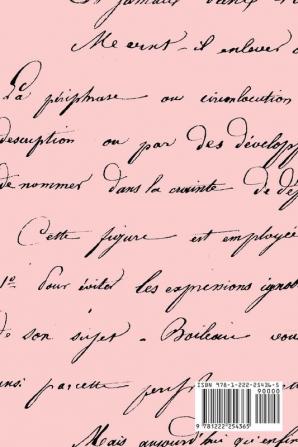 Et jamais
Me crut-il enlever
La périphrase ou circonlocution
description ou par des développ
de nommer dans la crainte de dép
Cette figure est employée
1° Pour éviter les expressions ignob
de son sujet - Boileau vou
ainsi par cette périph
Mais aujourd'hui qu'enfin
ISBN 978-1-222-25436-5
90000
9 781222 254365